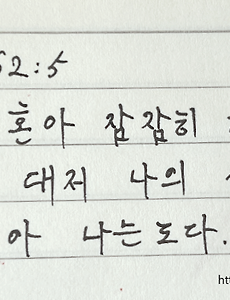 62:5
혼아 잠잠히
대저 나의
아 나는도다.
htt